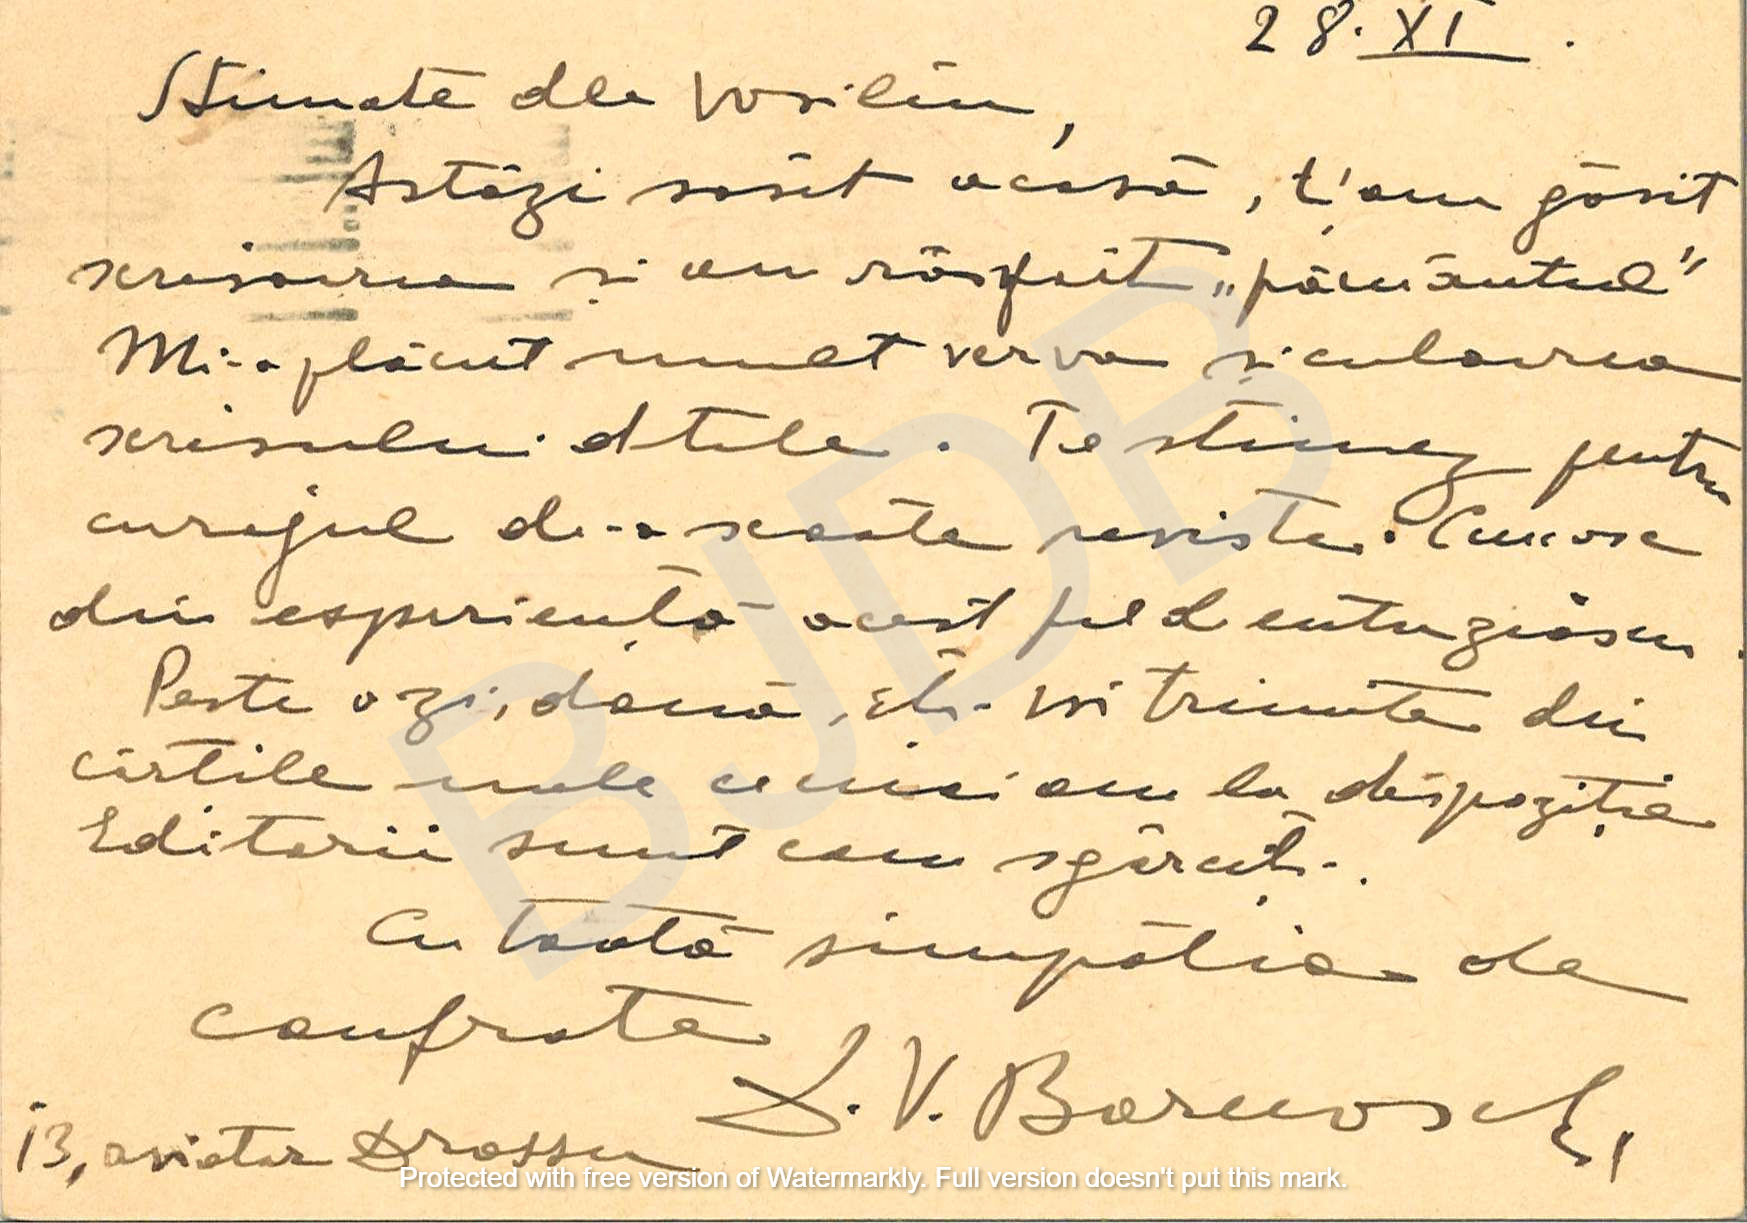 28.XI.
Stimate dle Vasiliu,
Astăzi sosit acasă, ț'am găsit
scrisoarea și am răsfoit „pământul"
Mi-a plăcut mult verva și culoarea
scrisului dtale. Te stimez pentru
curajul de-a scoate reviste. Cunosc
din esperiență acest fel d entuziasm.
Peste o zi, două, îți voi trimite din
cărțile mele ce mai am la dispoziție
Editorii sunt cam sgârciți.
Cu toată simpatia de
confrate
I. V. Barnoschi
13, aviator Drossu
BJDB
Protected with free version of Watermarkly. Full version doesn't put this mark.